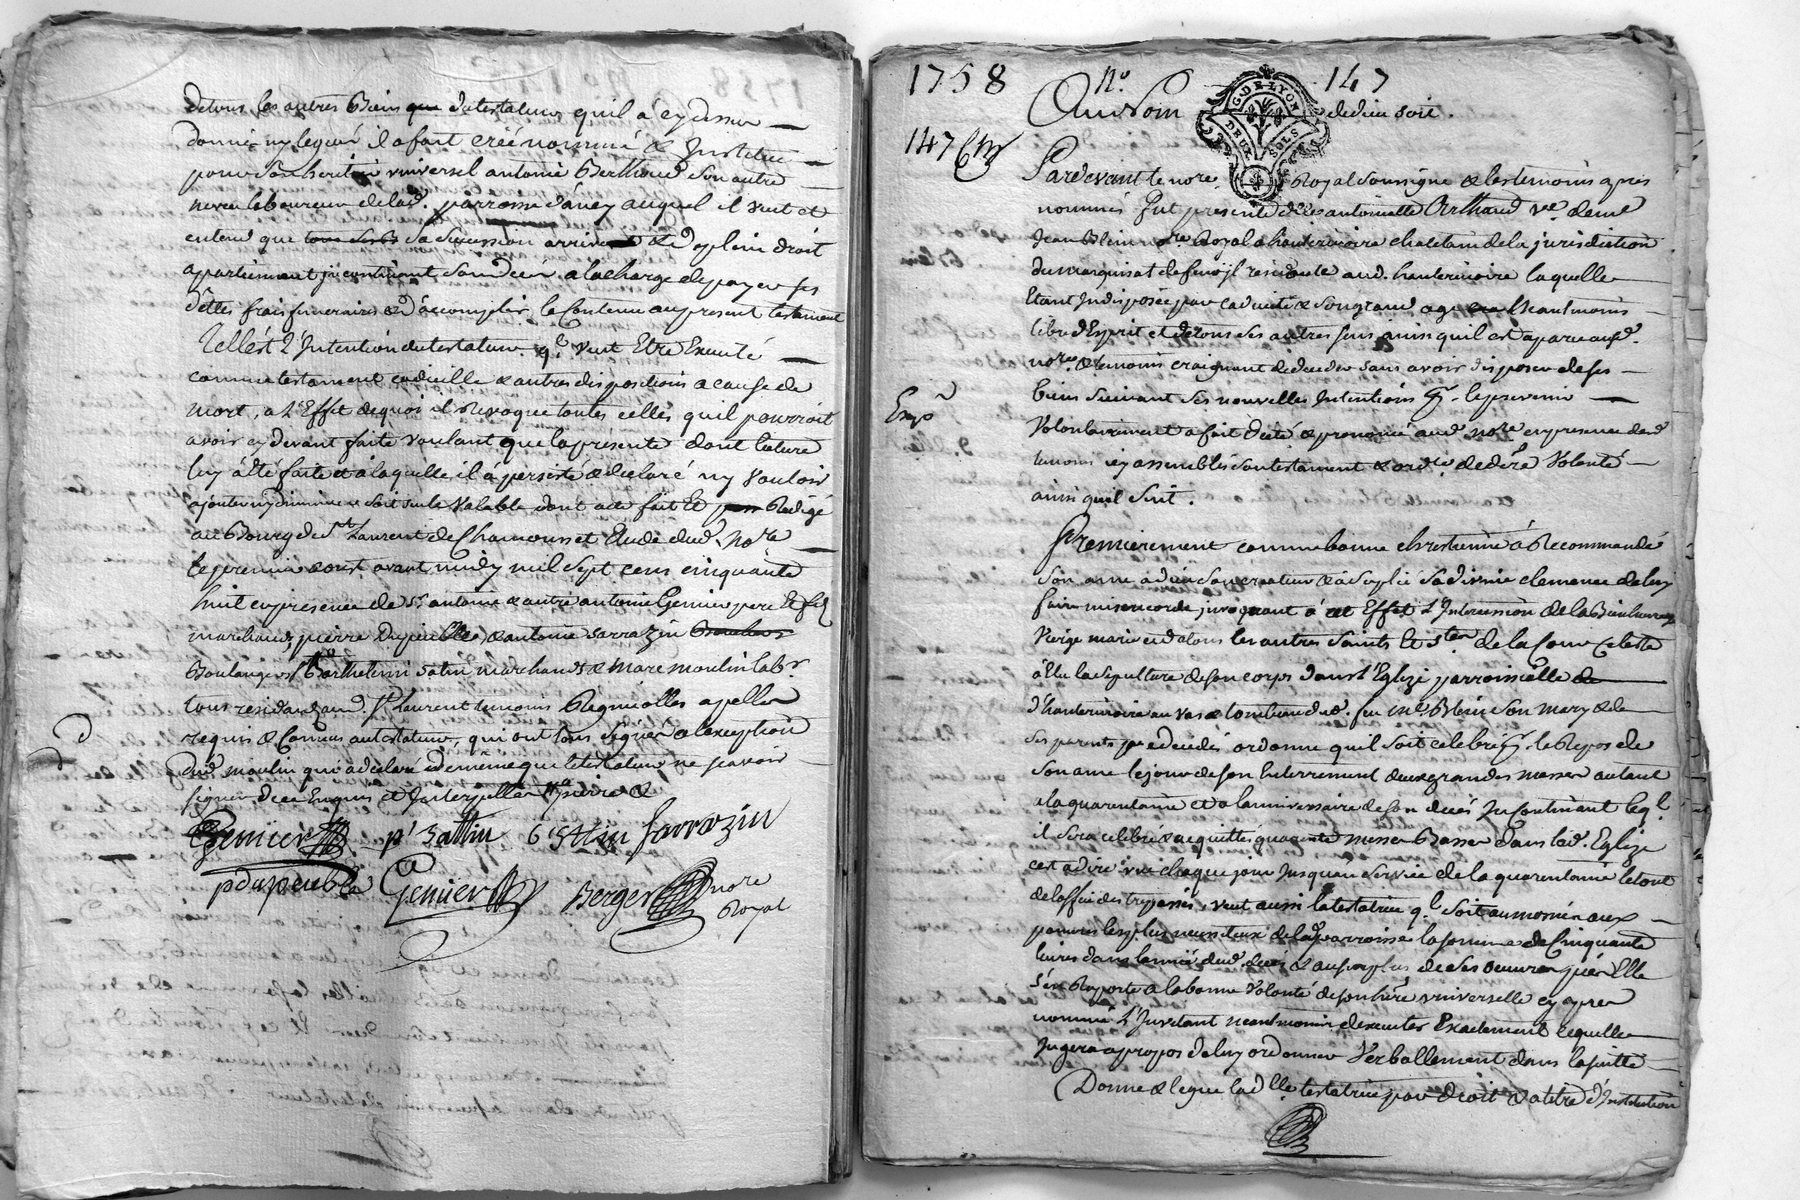 de tous les autres Biens que du testateur quil à cy dessus
donné ny legué il a fait créé nommé & Institué
pour son heritier universel antoine Berthoud son autre
neveu laboureur de lad. parroisse d'avey auquel il veut et
entend que tous ses B sa succession arrive de plein droit
apartiennent incontinant son decés a la charge de payer ses
dettes frais funeraires et d'accomplir le Contenu au present testament
Telle est L'Intention du testateur ql. veut Etre Executé
comme testament codicille & autres dispositions a cause de
mort, a L'Effet de quoi il Revoque toutes celles quil pourroit
avoir cy devant faite voulant que la presente dont lecture
luy à été faite et a laquelle il à persisté & declaré ny vouloir
ajouter ny diminuer soit seule Valable dont acte fait et pass Redigé
au Bourg de St Laurent de Chamousset Etude dud. Nore
le premier aoust avant midy mil sept cens cinquante
huit en presence de Sr. antoine & autre antoine Genier pere et fils
marchands, pierre Dupeuble, & antoine Sarrazin Boulan
Boulangers, Barthelemi Satin marchands & marc moulin labr.
tous residants aud. St Laurent temoins Requis et apellés
requis & Connus au testateur, qui ont tous signé a l'exception
dud. moulin qui a declaré de même que le testateur ne scavoir
signer de ce Enquis et Interpellés
Genier p' Sattin 6 Sttin sarrazin
pdupeuble Genier Berger nore
Royal
1758 No. 147
Au Nom de dieu soit.
G. DE LYON
DEUX SOLS
147 Ctm
Pardevant le nore. Royal soussigné & les temoins apres
nommés fut presente dlle antoinette Arthaud ve. de me
Jean Blein nore Royal a hauterivoire chatelain de la jurisdiction
du marquisat de Lassay residante aud. hauterivoire laquelle
Etant Indisposée par caducité & son grand age Neantmoins
libre d'Esprit et de tous ses autres sens ainsi quil est aparu aud.
nore. & temoins craignant de deceder sans avoir disposer de ses
Expé
biens suivant ses nouvelles Intentions pr. le prevenir
Volontairement a fait dicté & prononcé aud. nore en presence desd.
temoins icy assemblés son testament & ordce. de dere. Volonté
ainsi quil suit.
Premierement comme bonne chrestienne à Recommandé
son ame à dieu son createur & à suplié sa divine clemence de luy
faire misericorde, invoquant à cet Effet L'Intercession de la Bienheureuse
Vierge marie et de tous les autres Saints et Stes de la Cour Celeste
à Elu la sepulture de son corps dans L'Eglize parroissialle de
d'hauterivoire au vas & tombeau dud. feu me. Blein son mary & de
ses parents predecedés ordonne quil soit celebré pr. le Repos de
son ame le jour de son Enterrement deux grandes messes autant
a la quarantaine et a lanniversaire de son decés Incontinant leql.
il sera celebré & acquitté quarante messes Basses dans lad. Eglize
cest a dire une chaque jour Jusquau service de la quarantaine le tout
de loffice des trepassés, veut aussi la testatrice ql. soit aumosné aux
pauvres les plus necessiteux de lad. parroisse la somme de Cinquante
livres dans lannée dud. decés & au surplus de ses oeuvres pies Elle
s'en Raporte a la bonne Volonté de son here. universelle cy apres
nommé L'Invitant neantmoins d'executer Exactement ce quelle
Jugera apropos de luy ordonner Verballement dans la suitte
Donne & legue lad. lle. testatrice par droit & a titre d'Institution